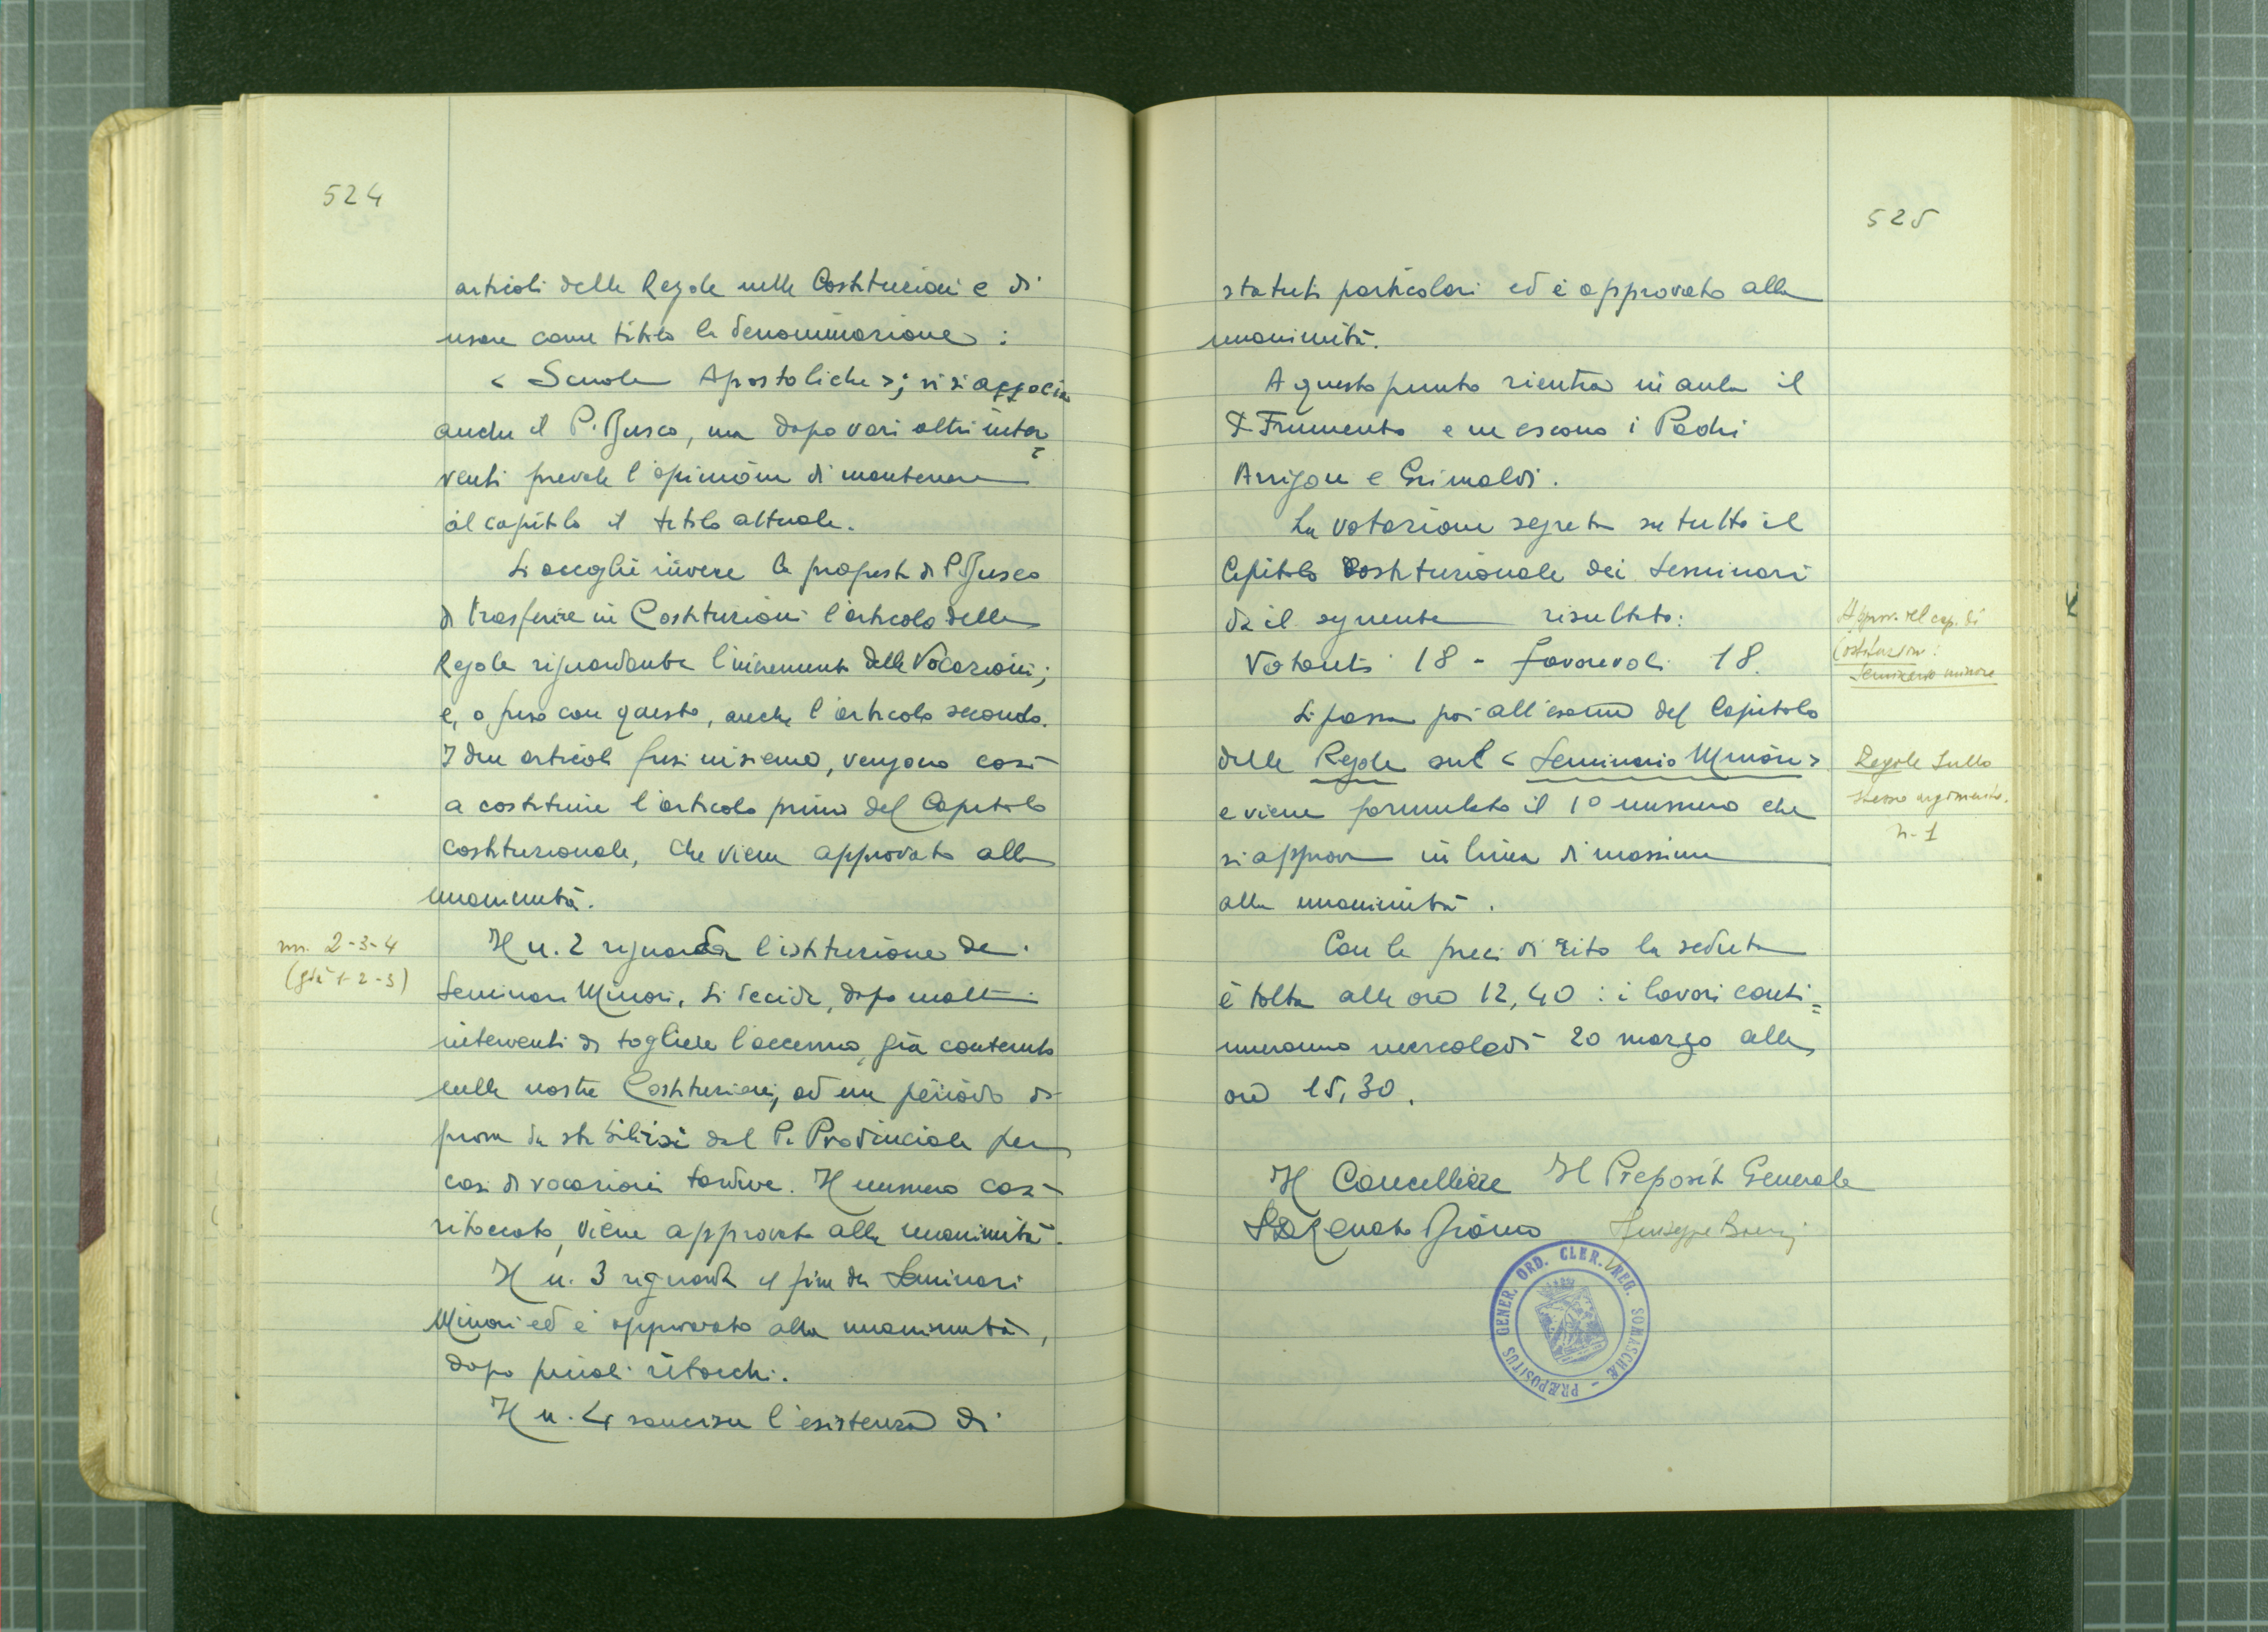 524
articoli delle Regole nelle Costituzioni e di
usare come titolo la denominazione:
< Scuole Apostoliche >; vi si associa
anche il P. Busco, ma dopo vari altri inter=
venti prevale l'opinione di mantenere
al capitolo il titolo attuale.
Si accoglie invece la proposta di P. Busco
di trasferire in Costituzioni l'articolo delle
Regole riguardante l'incremento delle Vocazioni;
e, fuso con questo, anche l'articolo secondo.
I due articoli fusi insieme, vengono così
a costituire l'articolo primo del Capitolo
costituzionale, che viene approvato alla
unanimità.
nn. 2-3-4
(già 1-2-3)
Il n. 2 riguarda l'istituzione dei
Seminari Minori. Si decide, dopo molti
interventi di togliere l'accenno, già contenuto
nelle nostre Costituzioni, ad un periodo di
prova da stabilirsi dal P. Provinciale per
casi di vocazioni tardive. Il numero così
ritoccato, viene approvato alla unanimità.
Il n. 3 riguarda il fine dei Seminari
Minori ed è approvato alla unanimità,
dopo piccoli ritocchi.
Il n. 4 sancisce l'esistenza di
525
statuti particolari ed è approvato alla
unanimità.
A questo punto rientra in aula il
P. Frumento e ne escono i Padri
Arrigoni e Grimaldi.
La votazione segreta su tutto il
Capitolo Costituzionale dei Seminari
dà il seguente risultato:
Votanti 18 - favorevoli 18.
Approv. del cap. di
Costituzioni:
Seminario minore
Si passa poi all'esame del Capitolo
delle Regole sul < Seminario Minore >
e viene formulato il 1° numero che
si approva in linea di massima
alla unanimità.
Regole sullo
stesso argomento.
n. 1
Con le preci di rito la seduta
è tolta alle ore 12,40 : i lavori conti=
nueranno mercoledì 20 marzo alle
ore 15,30.
Il Cancelliere Il Preposito Generale
Renato Bianco Giuseppe
PRÆPOSITUS GENER. ORD. CLER. REG. SOMASCHÆ